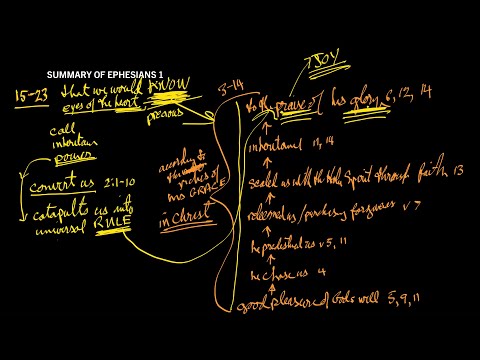 SUMMARY OF EPHESIANS 1
JOY
15-23 that we would KNOW
eyes of the heart, precious
call
inheritance
power
convert us 2:1-10
catapults us into
universal RULE
3-14
according to
the riches of
his GRACE
in Christ
to the praise of his glory, 6, 12, 14
inheritance 11, 14
sealed us with the Holy Spirit through faith, 13
redeemed us / purchasing forgiveness v 7
he predestined us v 5, 11
he chose us 4
good pleasure of God's will 5, 9, 11